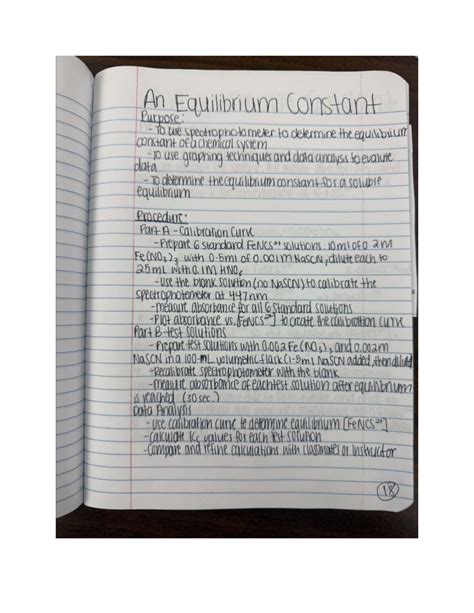 An Equilibrium Constant
Purpose:
- To use spectrophotometer to determine the equilibrium
constant of a chemical system
- To use graphing techniques and data analysis to evaluate
data
- To determine the equilibrium constant for a soluble
equilibrium
Procedure:
Part A - Calibration Curve
- Prepare 6 standard FeNCS²⁺ solutions: 10ml of 0.2M
Fe(NO₃)₃ with 0-5ml of 0.001M NaSCN, dilute each to
25mL with 0.1M HNO₃
- Use the blank solution (no NaSCN) to calibrate the
spectrophotometer at 447nm
- measure absorbance for all 6 standard solutions
- Plot absorbance vs. [FeNCS²⁺] to create the calibration curve
Part B - test solutions
- Prepare test solutions with 0.002 Fe(NO₃)₃ and 0.002M
NaSCN in a 100-mL volumetric flask (1-5mL NaSCN added, then diluted
- Recalibrate spectrophotometer with the blank
- measure absorbance of each test solution after equilibrium
is reached (30 sec.)
Data Analysis
- Use calibration curve to determine equilibrium [FeNCS²⁺]
- calculate Kc values for each test solution
- Compare and refine calculations with classmates or Instructor
18